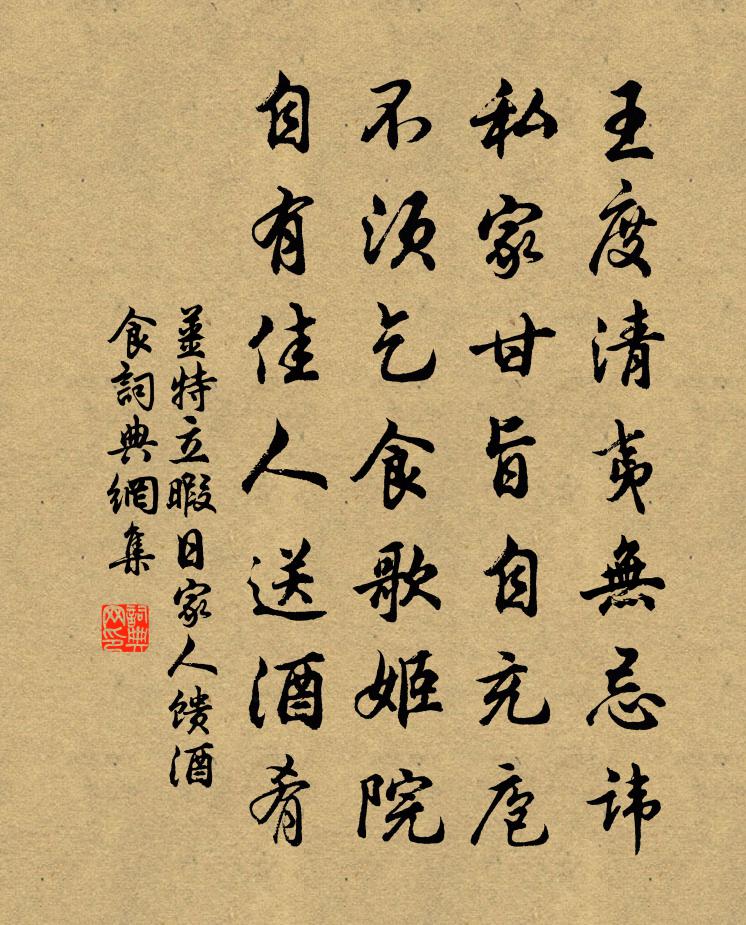 王度清夷無忌諱
私家甘旨自充庖
不須乞食歌姬院
自有佳人送酒肴
姜特立暇日家人馈酒
食詞典網集
詞典
网印